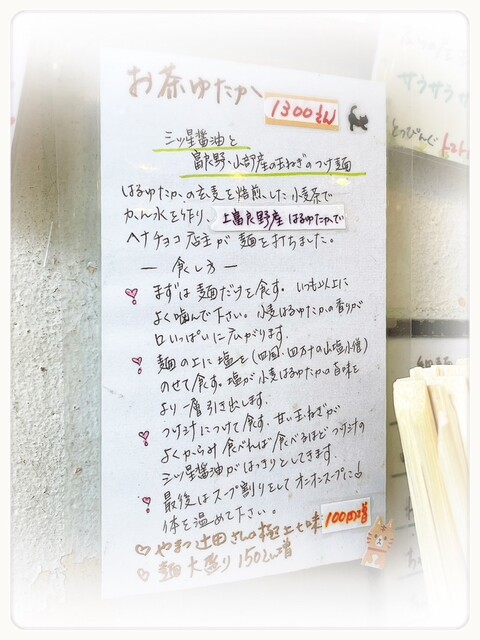 お茶ゆたか
1300えん
三ッ星醤油と
富良野・山部産の玉ねぎのつけ麺
はるゆたかの玄麦を焙煎した小麦茶で
かん水を作り、上富良野産はるゆたかで
ヘナチョコ店主が麺を打ちました。
— 食し方 —
まずは麺だけを食す。いつも以上に
よく噛んで下さい。小麦はるゆたかの香りが
口いっぱいに広がります。
麺の上に塩を(四国・四万十の山塩小僧)
のせて食す。塩が小麦はるゆたかの旨味を
より一層引き出します。
つけ汁につけて食す。甘い玉ねぎが
よくからみ食べれば食べるほどつけ汁の
三ッ星醤油がはっきりとしてきます。
最後はスープ割りをしてオニオンスープに
体を温めて下さい。
やまつ辻田さんの極上七味 100円増
麺大盛り150えん増
サラサラ
とっぴんぐ トマト